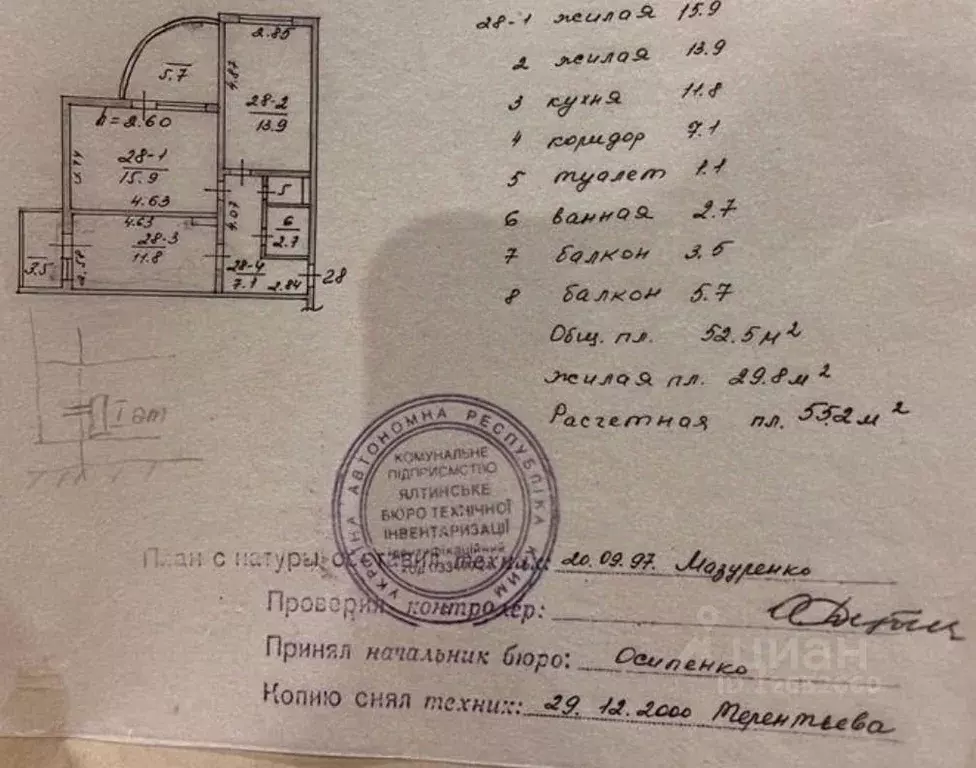 28-1 жилая 15.9
2 жилая 13.9
3 кухня 11.8
4 коридор 7.1
5 туалет 1.1
6 ванная 2.7
7 балкон 3.5
8 балкон 5.7
Общ. пл. 52.5 м²
жилая пл. 29.8 м²
Расчетная пл. 55.2 м²
2.85
5.7
4.87
28-2
13.9
h=2.60
28-1
15.9
4.63
5
4.07
6
2.7
4.63
28-3
11.8
3.5
28-4
7.1
2.84
28
I эт
УКРАЇНА АВТОНОМНА РЕСПУБЛІКА КРИМ
КОМУНАЛЬНЕ
ПІДПРИЄМСТВО
ЯЛТИНСЬКЕ
БЮРО ТЕХНІЧНОЇ
ІНВЕНТАРИЗАЦІЇ
ідентифікаційний
План с натуры составил техник: 20.09.97. Мазуренко
Проверил контролер:
Принял начальник бюро: Осипенко
Копию снял техник: 29.12.2000 Терентьева
циан